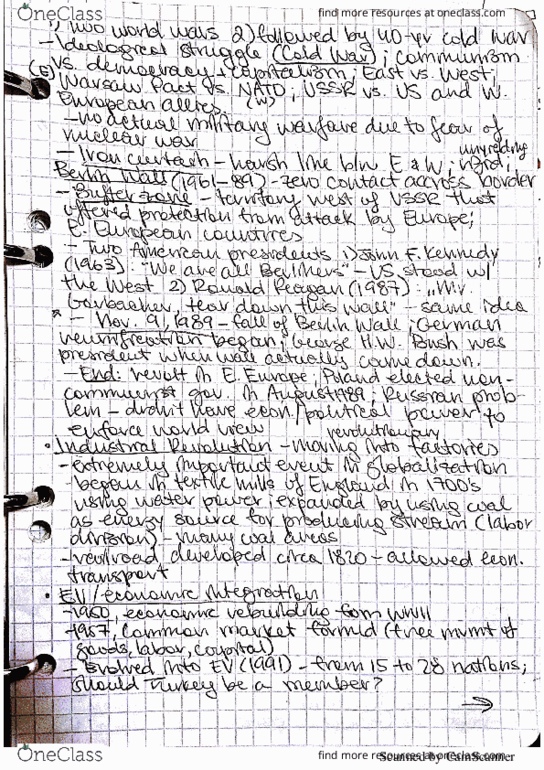 OneClass
find more resources at oneclass.com
", two world wars 2) followed by 40-yr cold war
- Ideological struggle (Cold War); communism
(E) vs. democracy + capitalism; East vs. West;
Warsaw Pact vs. NATO; USSR vs. US and W.
European allies. (W)
- no actual military warfare due to fear of
nuclear war
- Iron curtain - harsh line b/w E & W; rigid, unyielding
Berlin Wall (1961-89) - zero contact across border
- Buffer zone - territory west of USSR that
offered protection from attack by Europe;
E. European countries
- Two American presidents 1) John F. Kennedy
(1963): "We are all Berliners" - US stood w/
the West 2) Ronald Reagan (1987): "Mr.
Gorbachev, tear down this wall" - same idea
* - Nov. 9, 1989 - fall of Berlin Wall; German
reunification began; George H.W. Bush was
president when wall actually came down.
- End: revolt in E. Europe; Poland elected non-
communist gov. in August 1989; Russian prob-
lem - didn't have econ./political power to
enforce world view
• Industrial Revolution - moving into factories revolutionary
- extremely important event in globalization
- began in textile mills of England in 1700's
using water power; expanded by using coal
as energy source for producing stream (labor
division) - many coal areas
- railroad developed circa 1820 - allowed econ.
transport
• EU/economic integration
- 1950, economic rebuilding from WWII
- 1957, common market formed (free mvmt of
goods, labor, capital)
- Evolved into EU (1991) - from 15 to 28 nations;
should Turkey be a member?
→
OneClass
find more resources at oneclass.com
Scanned by CamScanner